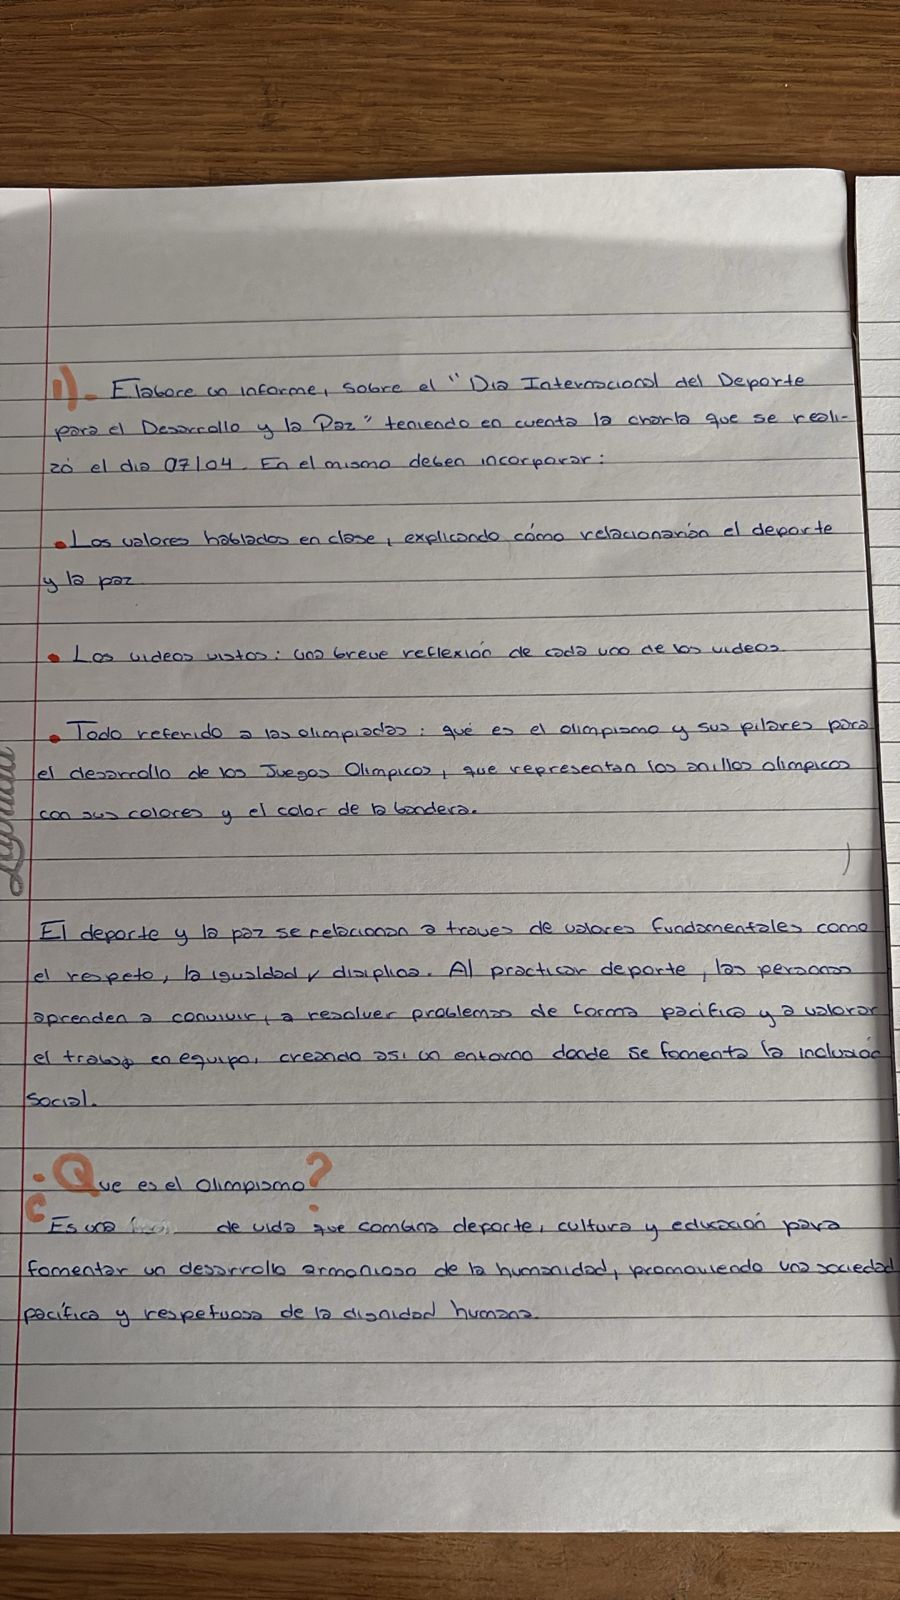 1)- Elabore un informe, sobre el "Dia Internacional del Deporte
para el Desarrollo y la Paz" teniendo en cuenta la charla que se reali-
zó el dia 07/04. En el mismo deben incorporar:
• Los valores hablados en clase, explicando cómo relacionarían el deporte
y la paz
• Los videos vistos: una breve reflexión de cada uno de los videos.
• Todo referido a las olimpiadas: qué es el olimpismo y sus pilares para
el desarrollo de los Juegos Olimpicos, que representan los anillos olimpicos
con sus colores y el color de la bandera.
El deporte y la paz se relacionan a traves de valores fundamentales como
el respeto, la igualdad y disiplina. Al practicar deporte, las personas
aprenden a convivir, a resolver problemas de forma pacifica y a valorar
el trabajo en equipo, creando asi un entorno donde se fomenta la inclusión
social.
• ¿Que es el olimpismo?
Es una de vida que combina deporte, cultura y educación para
fomentar un desarrollo armonioso de la humanidad, promoviendo una sociedad
pacífica y respetuosa de la dignidad humana.